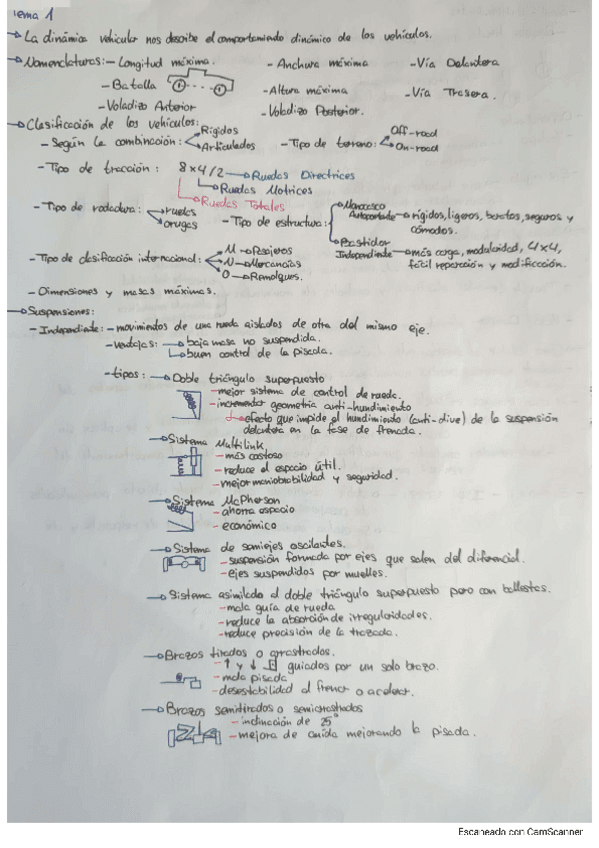 Tema 1
La dinámica vehicular nos describe el comportamiento dinámico de los vehículos.
Nomenclaturas: - Longitud máxima. - Anchura máxima - Vía Delantera
- Batalla - Altura máxima - Vía Trasera.
- Voladizo Anterior - Voladizo Posterior.
Clasificación de los vehículos:
- Según la combinación: Rígidos Articulados - Tipo de terreno: Off-road On-road
- Tipo de tracción: 8x4/2 Ruedas Directrices
Ruedas Motrices
Ruedas Totales
- Tipo de rodadura: ruedas orugas - Tipo de estructura: Monocasco Autoportante rígidos, ligeros, baratos, seguros y cómodos.
Bastidor Independiente más carga, modularidad, 4x4, fácil reparación y modificación.
- Tipo de clasificación internacional: M Pasajeros
N Mercancías
O Remolques.
- Dimensiones y masas máximas.
Suspensiones:
- Independiente: - movimientos de una rueda aislados de otra del mismo eje.
- ventajas: baja masa no suspendida.
buen control de la pisada.
- tipos: Doble triángulo superpuesto
- mejor sistema de control de rueda.
- incrementar geometría anti-hundimiento
efecto que impide el hundimiento (anti-dive) de la suspensión
delantera en la fase de frenada.
Sistema Multilink
- más costoso
- reduce el espacio útil.
- mejor maniobrabilidad y seguridad.
Sistema McPherson
- ahorra espacio
- económico
Sistema de semiejes oscilantes.
- suspensión formada por ejes que salen del diferencial.
- ejes suspendidos por muelles.
Sistema asimilado al doble triángulo superpuesto pero con ballestas.
- mala guía de rueda
- reduce la absorción de irregularidades.
- reduce precisión de la trazada.
Brazos tirados o arrastrados.
- ↑ y ↓ guiados por un solo brazo.
- mala pisada
- desestabilidad al frenar o acelerar.
Brazos semitirados o semiarrastrados
- inclinación de 25°
- mejora de caída mejorando la pisada.
Escaneado con CamScanner